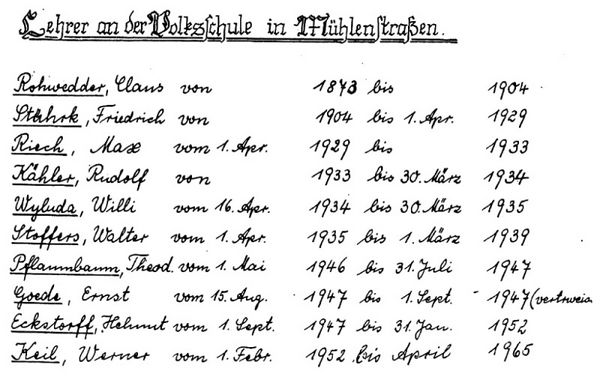 Lehrer an der Volksschule in Mühlenstraßen.
Rohwedder, Claus von 1873 bis 1904
Stährk, Friedrich von 1904 bis 1. Apr. 1929
Riech, Max vom 1. Apr. 1929 bis 1933
Kähler, Rudolf von 1933 bis 30. März 1934
Wyluda, Willi vom 16. Apr. 1934 bis 30. März 1935
Stoffers, Walter vom 1. Apr. 1935 bis 1. März 1939
Pflaumbaum, Theod. vom 1. Mai 1946 bis 31. Juli 1947
Goede, Ernst vom 15. Aug. 1947 bis 1. Sept. 1947 (vertrweia
Eckstorff, Helmut vom 1. Sept. 1947 bis 31. Jan. 1952
Keil, Werner vom 1. Febr. 1952 bis April 1965